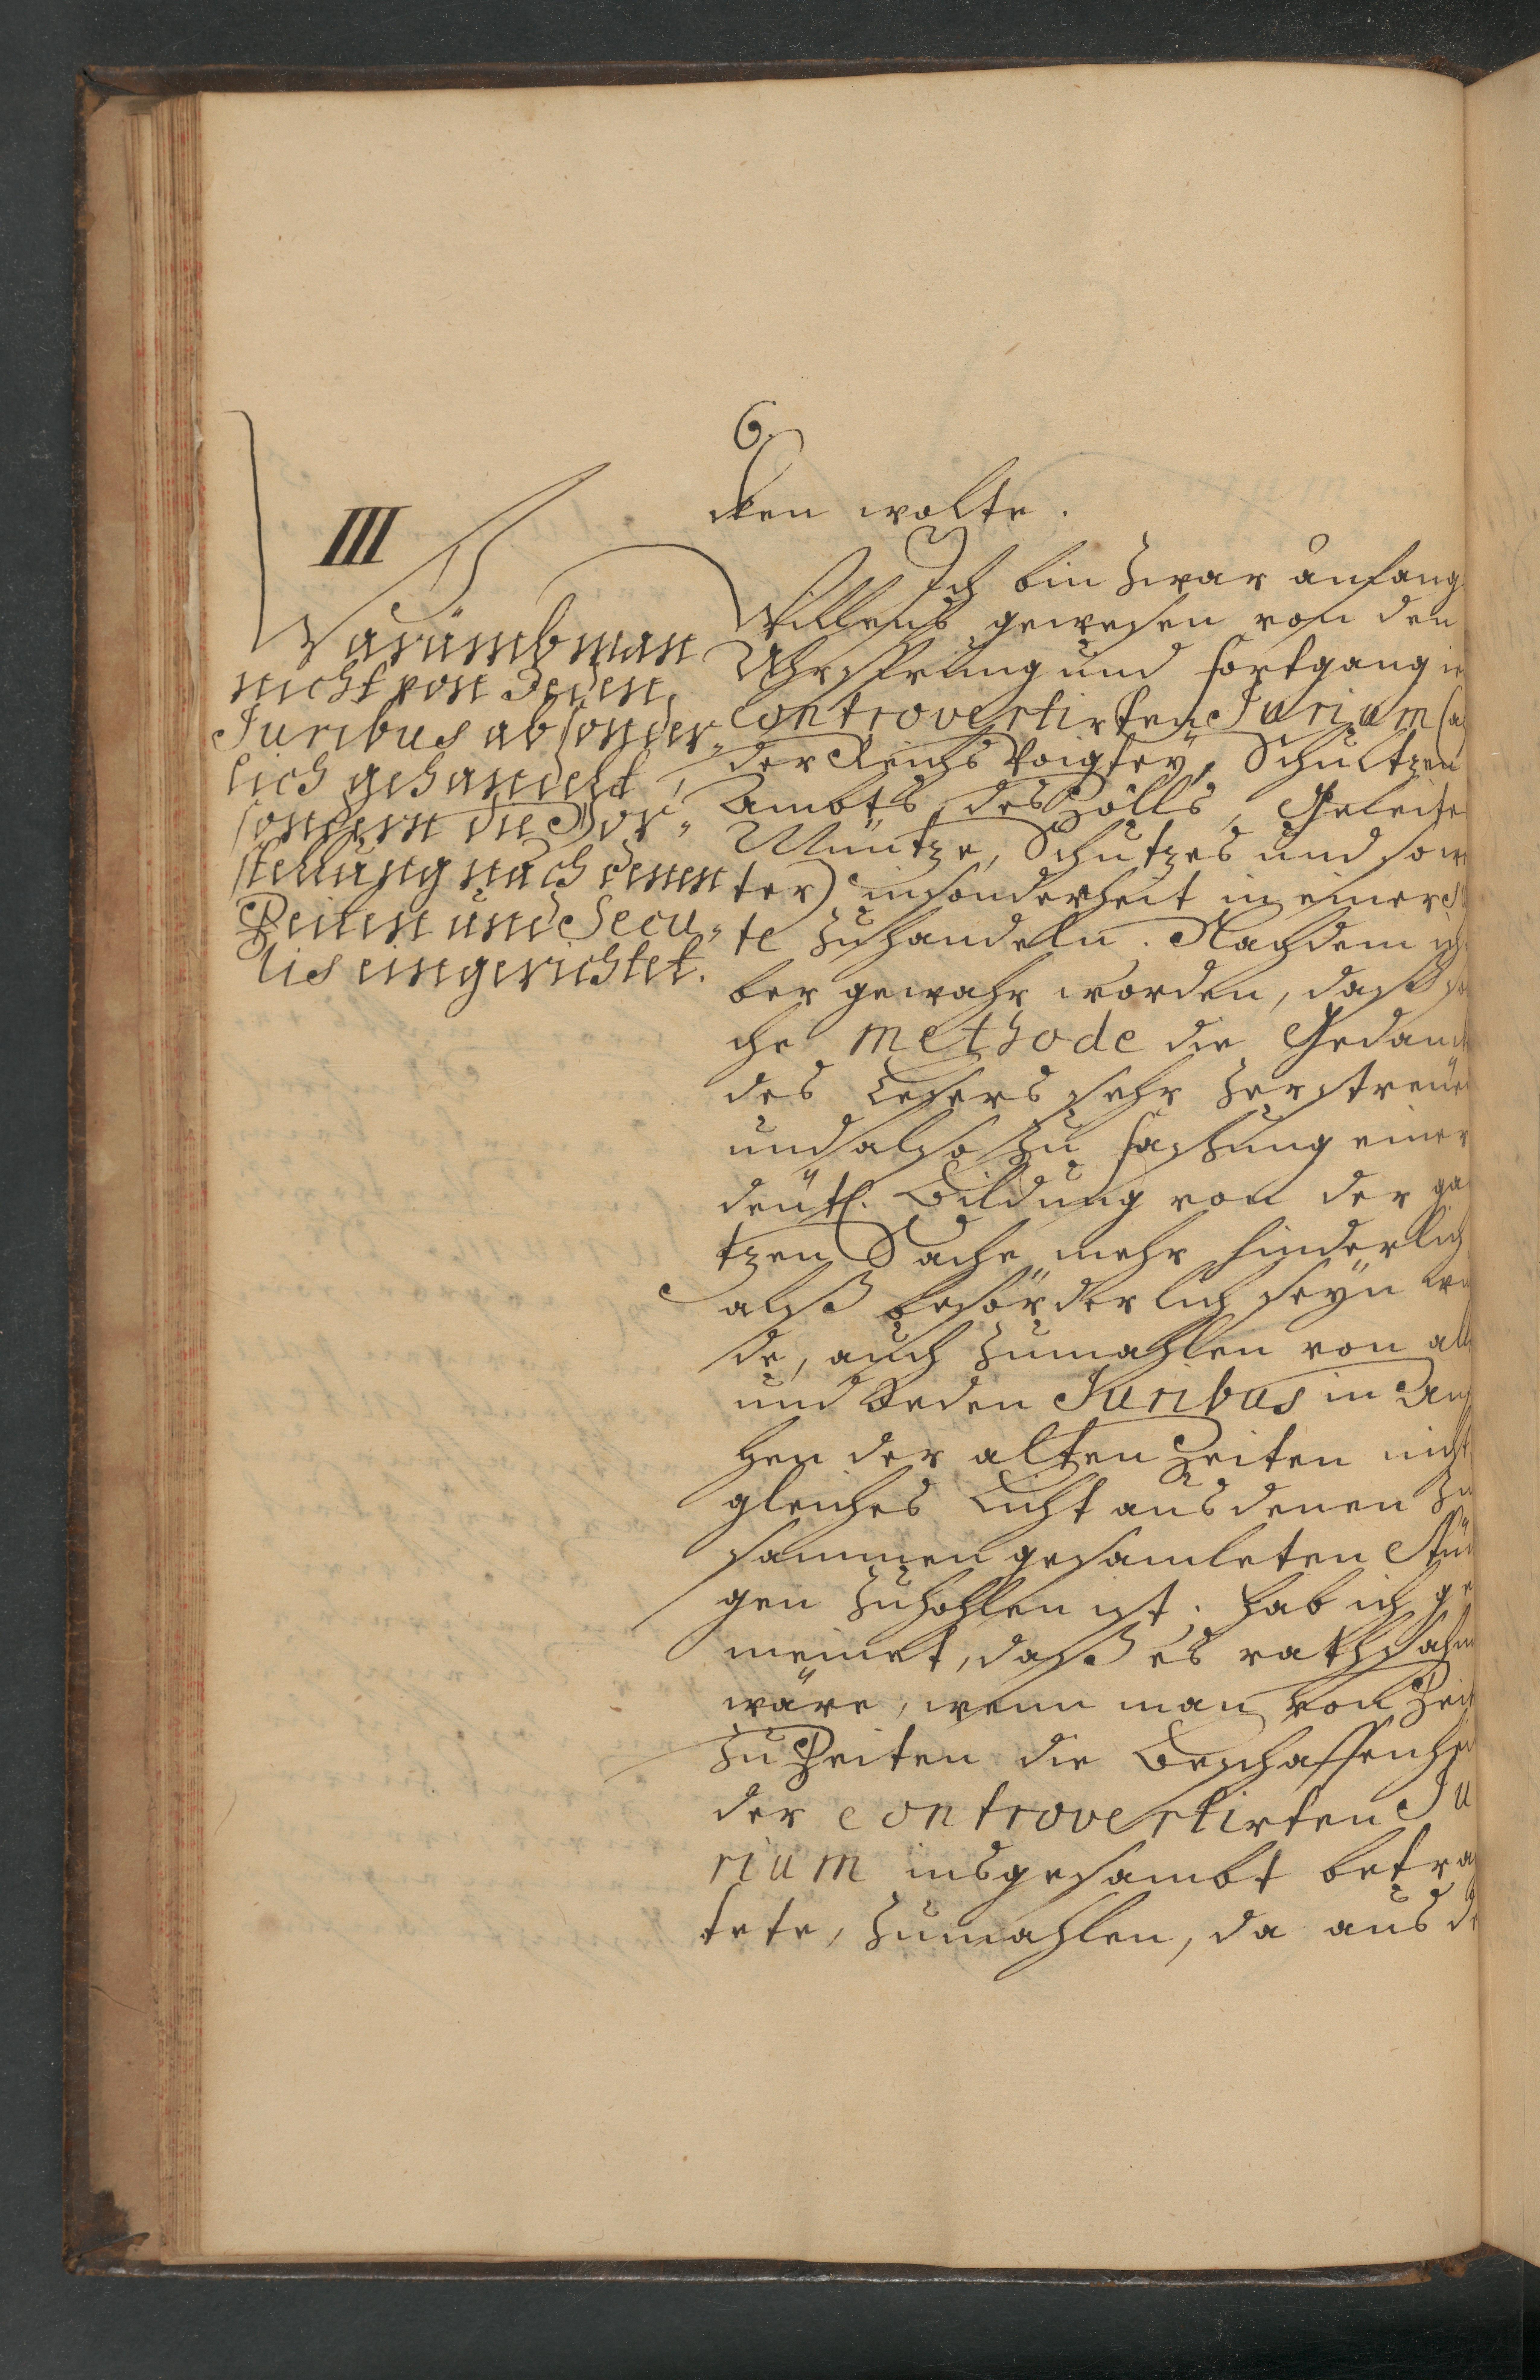 6.
cken wolte.
III
Warumb man
nicht von Jeden
Juribus absonder-
lich gehandelt,
sondern die Vor-
stellung nach denen
Zeiten und Secu-
lis eingerichtet.
Ich bin zwar anfang
Willens gewesen von den
Uhrsprung und fortgang
controvertirten Jurium
der Reichs Voigtey, Schultzen
Ambts, des Zolls, Geleits
Müntze, Schutzes und so
ter) insonderheit in einer
te zu handeln. Nachdem ich
ber gewahr worden, daß
che methode die Gedanck
des Lesers sehr zerstreüe
und also zu faßung einer
deutl. Bildung von der
tzen Sache mehr hinderlich
alß beförderlich seyn
de, auch zumahlen von all
und Jeden Juribus in
hen der alten Zeiten nicht
gleiches Licht aus denen zu
sammen gesamleten
gen zuhohlen ist. hab ich ge
meinet, daß es rathsahm
wäre, wenn man von Zeit
zu Zeiten die Beschaffenhei
der controvertirten Ju
rium insgesambt betra
tete, zumahlen, da aus